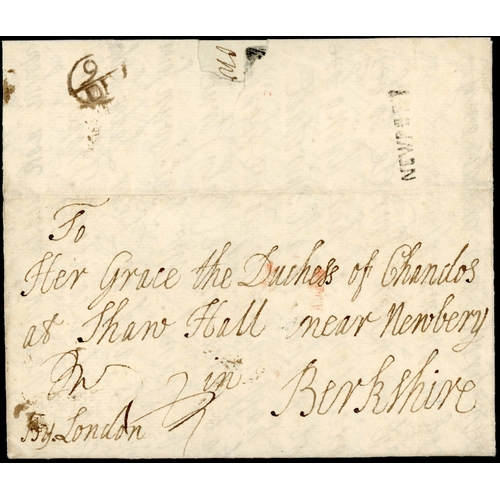 To
Her Grace the Duchess of Chandos
at Shaw Hall near Newbery
in
Berkshire
By London